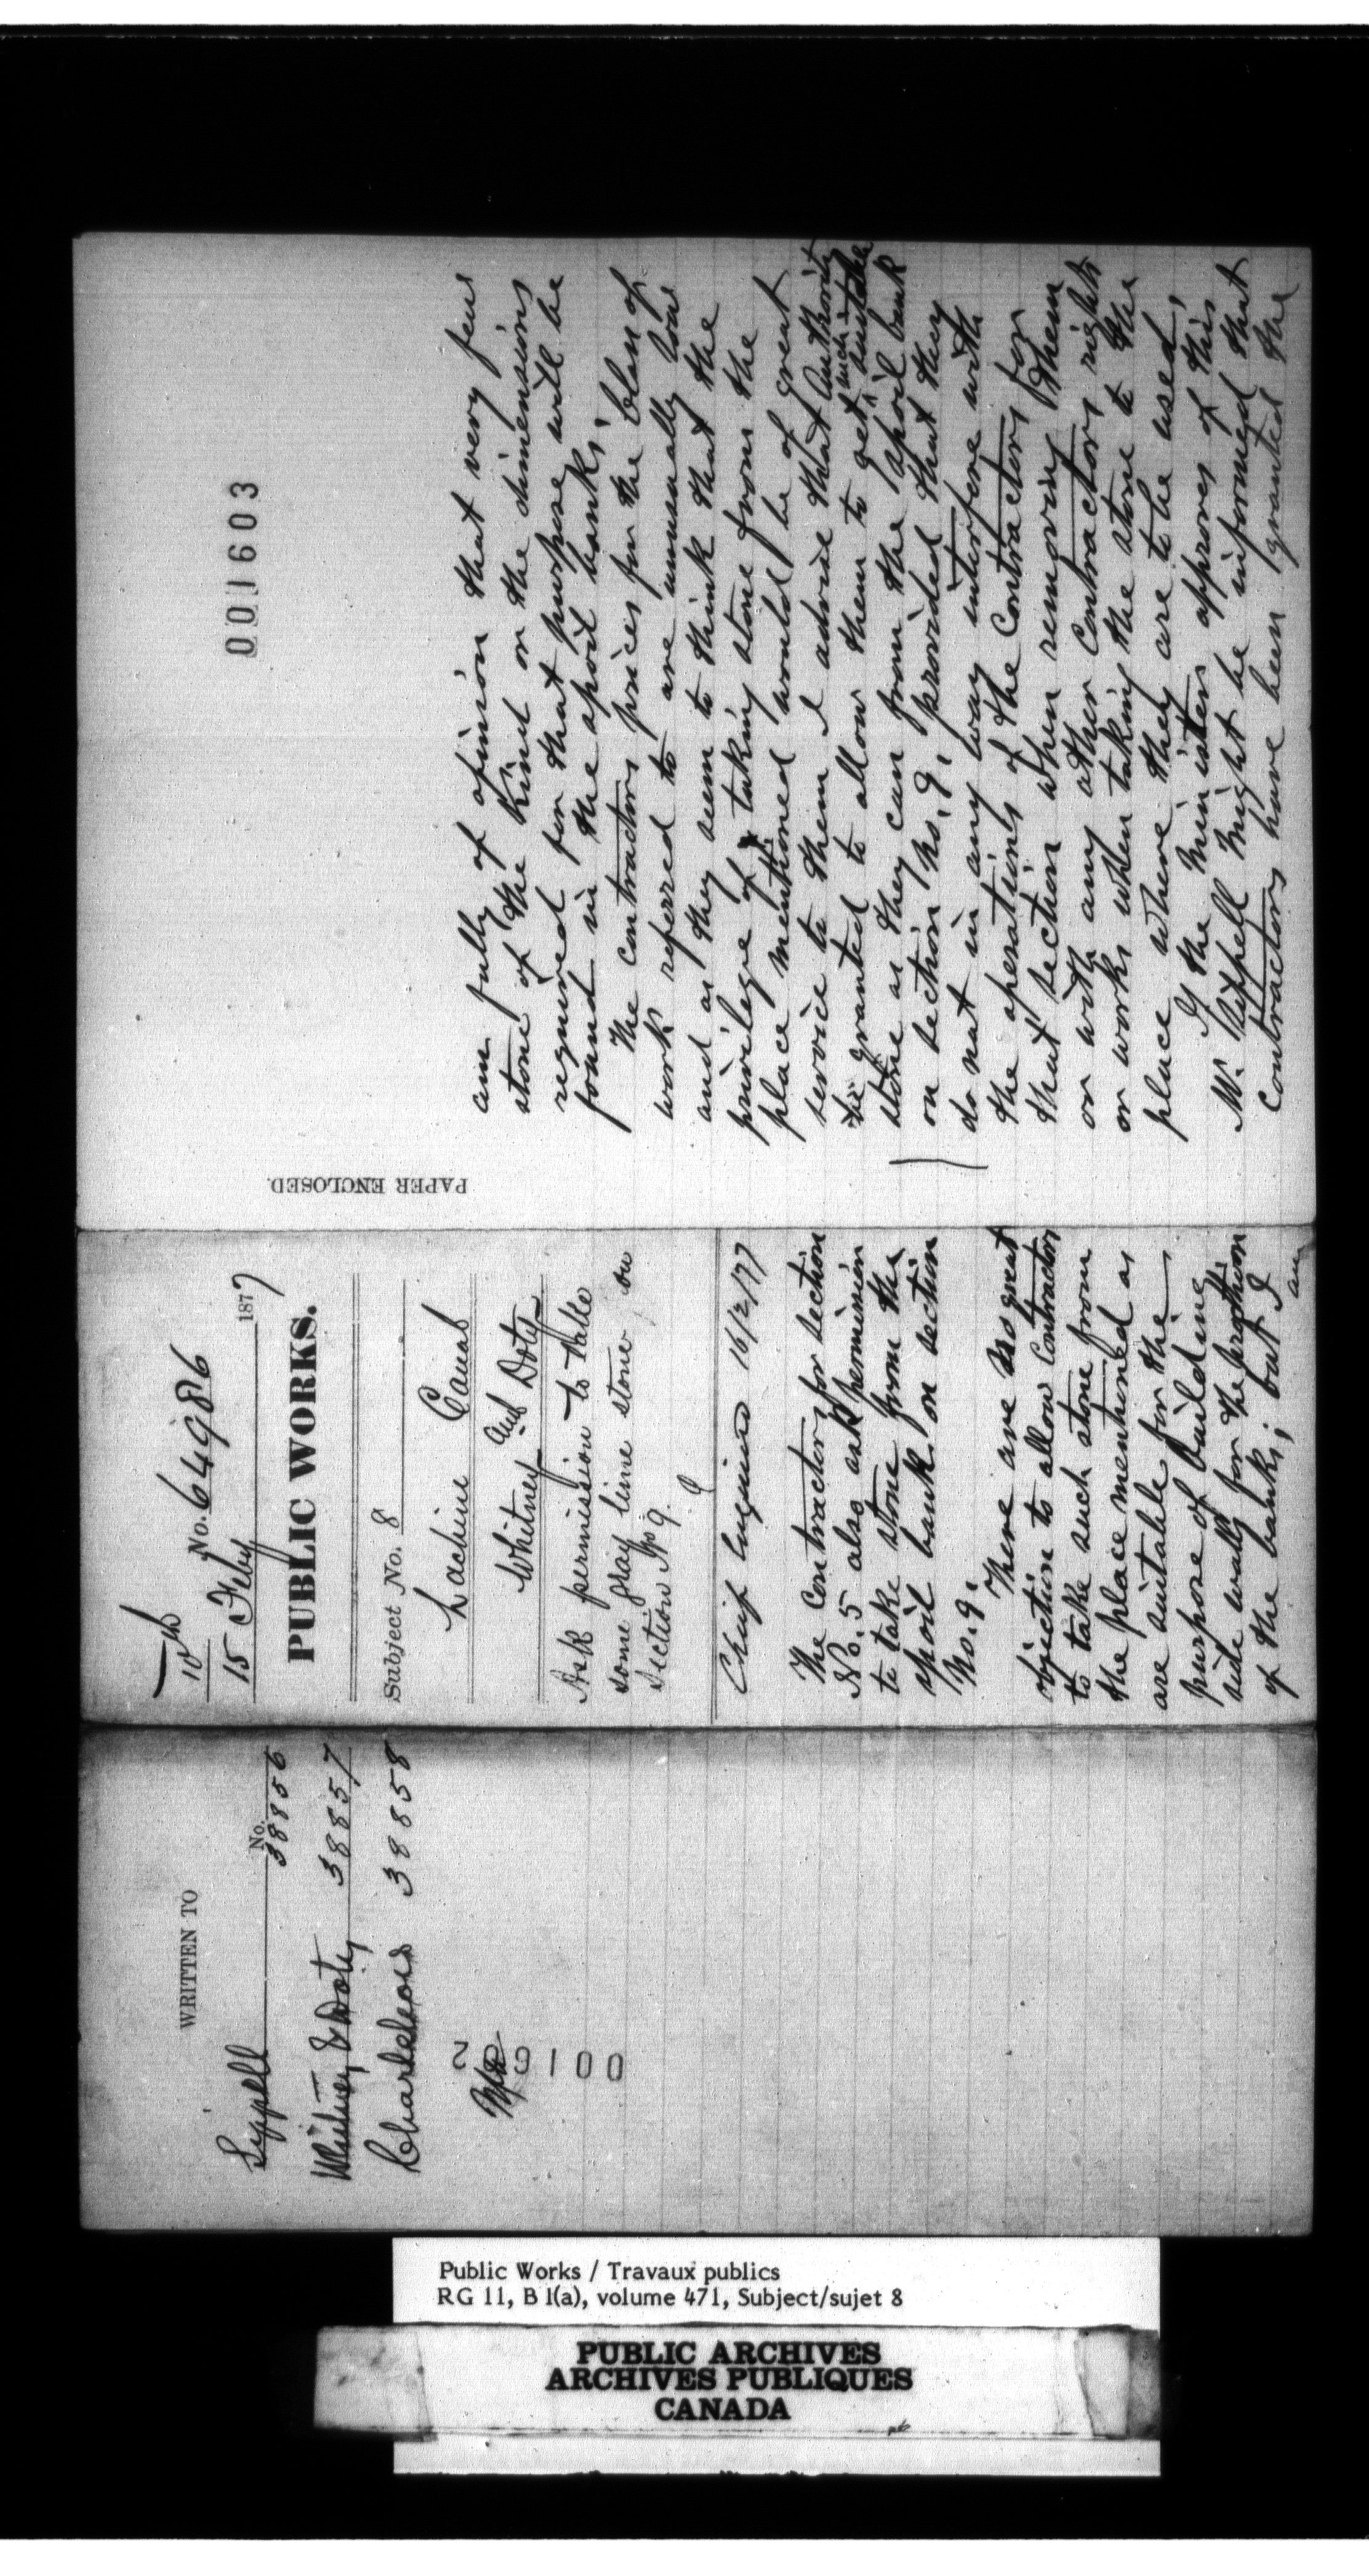 WRITTEN TO
No.
Sippell 38856
Whitney & Doty 38857
Charlebois 38858
10th
No. 64986
15 Feby 1877
PUBLIC WORKS.
Subject No. 8
Lachine Canal
Whitney and Doty
Ask permission to take
some gray lime stone on
Section No 9.
Chief Engineer 16/2/77
The Contractors for Section
No. 5 also ask permission
to take stone from the
spoil bank on section
No. 9.
There are no great
objection to allow Contractors
to take such stone from
the place mentioned as
are suitable for the
purpose of building
side walls for the protection
of the banks; but I
am
PAPER ENCLOSED.
001603
am fully of opinion that very few
stone of the kind or the dimensions
required for that purpose will be
found in the spoil banks.
The contractors prices for the class of
work referred to are unusually low
and as they seem to think that the
privilege of taking stone from the
place mentioned would be of great
service to them I advise that authority
be granted to allow them to get such suitable
stone as they can from the spoil bank
on section No. 9, provided that they
do not in any way interfere with
the operations of the Contractors for
that section when removing them
or with any other Contractors rights
or works when taking the stone to the
place where they are to be used.
If the Minister approves of this
Mr. Sippell might be informed that
Contractors have been granted the
Public Works / Travaux publics
RG 11, B 1(a), volume 471, Subject/sujet 8
PUBLIC ARCHIVES
ARCHIVES PUBLIQUES
CANADA